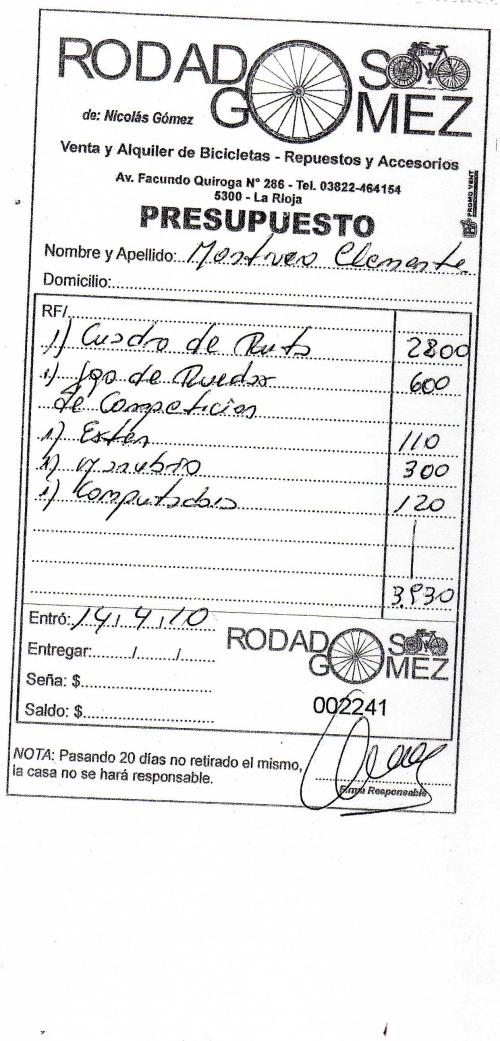 RODADOS
GOMEZ
de: Nicolás Gómez
Venta y Alquiler de Bicicletas - Repuestos y Accesorios
Av. Facundo Quiroga N° 286 - Tel. 03822-464154
5300 - La Rioja
PROMO VENT
PRESUPUESTO
Nombre y Apellido: Clemente
Domicilio:
RF/
1) Cuadro de Ruta 2800
1) Jgo de Ruedas 600
de Competicion
1) Esten 110
1) manubrio 300
1) Computadora 120
3.930
Entró: 14, 4, 10
Entregar: / /
Seña: $
Saldo: $
RODADOS
GOMEZ
002241
NOTA: Pasando 20 días no retirado el mismo,
la casa no se hará responsable.
Firma Responsable